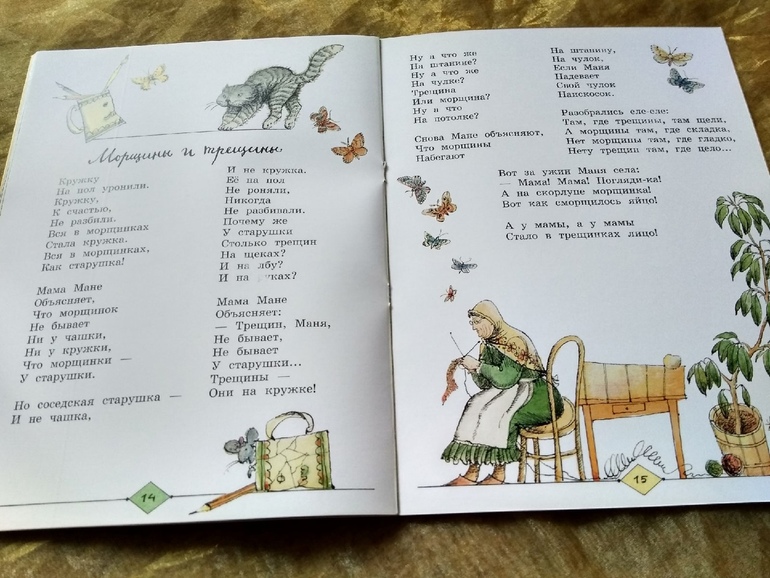 Морщины и трещины
Кружку
На пол уронили.
Кружку,
К счастью,
Не разбили.
Вся в морщинках
Стала кружка.
Вся в морщинках,
Как старушка!
Мама Мане
Объясняет,
Что морщинок
Не бывает
Ни у чашки,
Ни у кружки,
Что морщинки —
У старушки.
Но соседская старушка —
И не чашка,
И не кружка.
Её на пол
Не роняли,
Никогда
Не разбивали.
Почему же
У старушки
Столько трещин
На щеках?
И на лбу?
И на руках?
Мама Мане
Объясняет:
— Трещин, Маня,
Не бывает,
Не бывает
У старушки...
Трещины —
Они на кружке!
14
Ну а что же
На штанине?
Ну а что же
На чулке?
Трещина
Или морщина?
Ну а что
На потолке?
Снова Мане объясняют,
Что морщины
Набегают
На штанину,
На чулок,
Если Маня
Надевает
Свой чулок
Наискосок.
Разобрались еле-еле:
Там, где трещины, там щели,
А морщины там, где складка,
Нет морщины там, где гладко,
Нету трещин там, где цело...
Вот за ужин Маня села:
— Мама! Мама! Погляди-ка!
А на скорлупе морщинка!
Вот как сморщилось яйцо!
А у мамы, а у мамы
Стало в трещинках лицо!
15